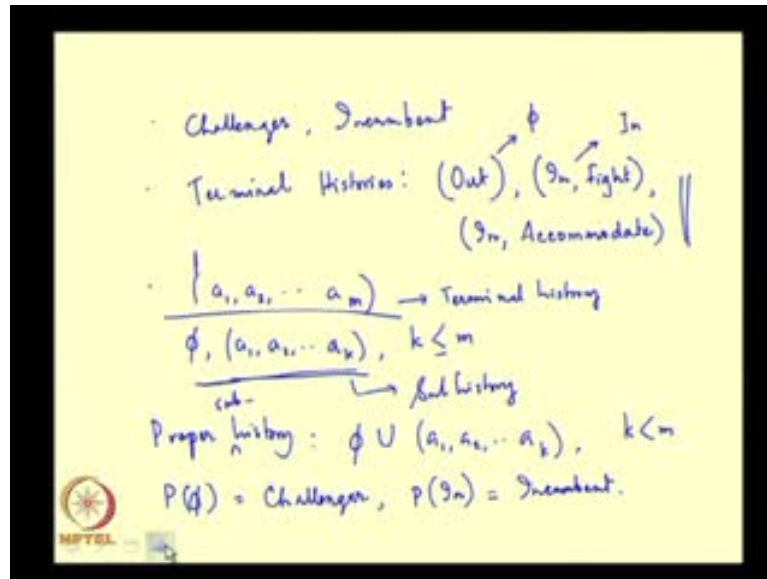 Challenger, Incumbent
φ In
Terminal Histories: (Out), (In, Fight),
(In, Accommodate)
(a₁, a₂, ... aₘ) → Terminal history
φ, (a₁, a₂, ... aₖ), k ≤ m
→ Sub history
sub-
Proper history: φ ∪ (a₁, a₂, ... aₖ), k < m
P(φ) = Challenger, P(In) = Incumbent.
NPTEL